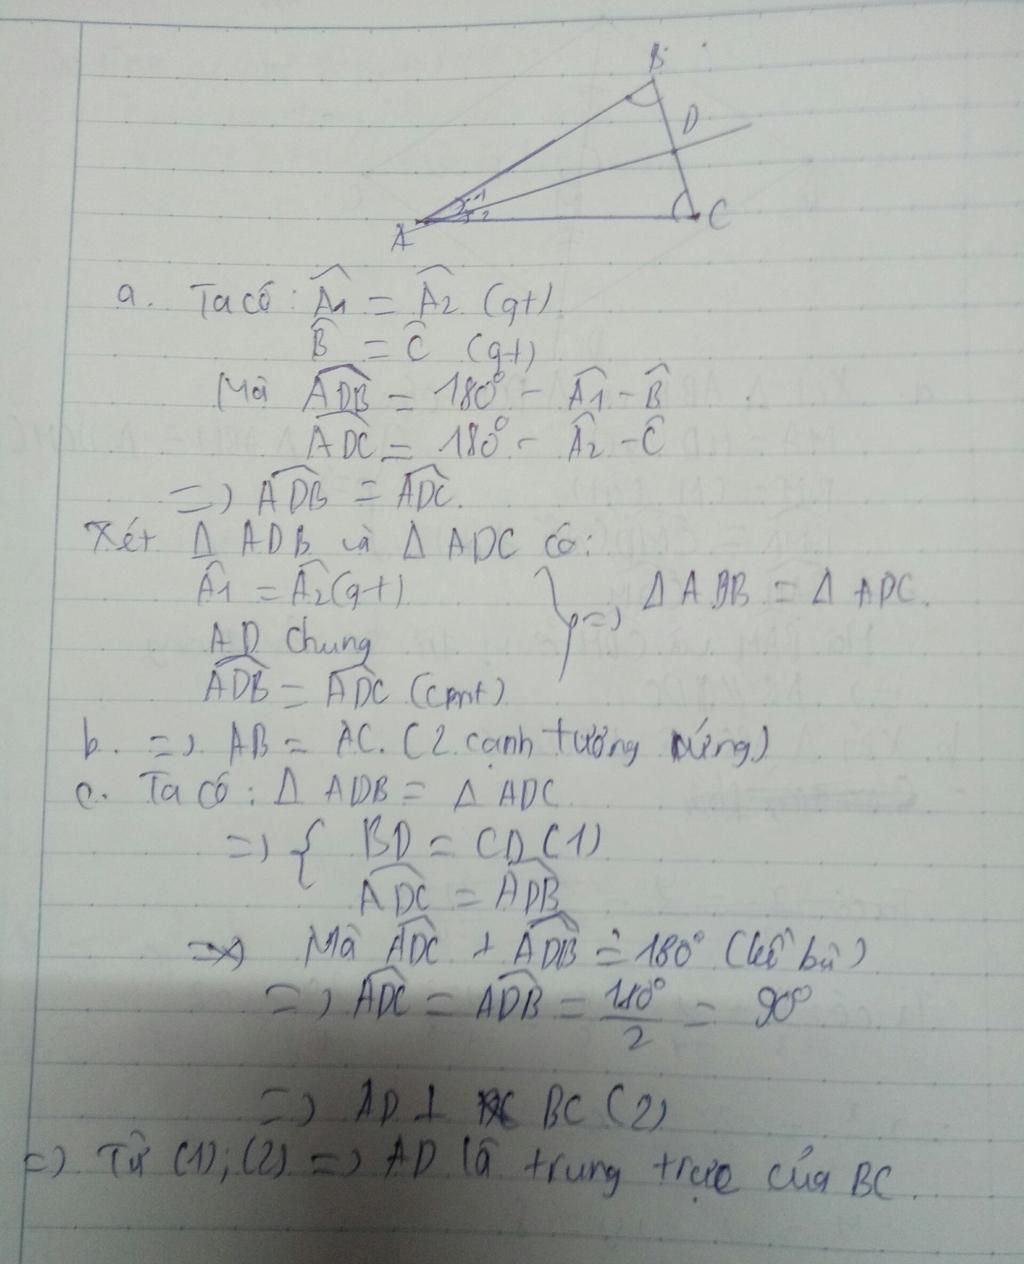 B
D
1
2
A
C
a. Ta có: Â1 = Â2 (gt)
B̂ = Ĉ (gt)
Mà ADB̂ = 180° - Â1 - B̂
ADĈ = 180° - Â2 - Ĉ
=> ADB̂ = ADĈ.
Xét Δ ADB và Δ ADC có:
Â1 = Â2 (gt)
AD chung
ADB̂ = ADĈ (cmt)
} => Δ ADB = Δ ADC.
b. => AB = AC. (2 cạnh tương ứng)
c. Ta có: Δ ADB = Δ ADC
=> { BD = CD (1)
ADĈ = ADB̂
Mà ADĈ + ADB̂ = 180° (kề bù)
=> ADĈ = ADB̂ = 180°/2 = 90°
=> AD ⊥ BC (2)
=> Từ (1); (2) => AD là trung trực của BC.